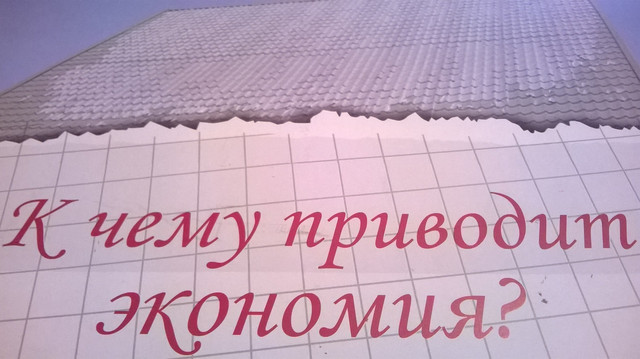 К чему приводит
экономия?